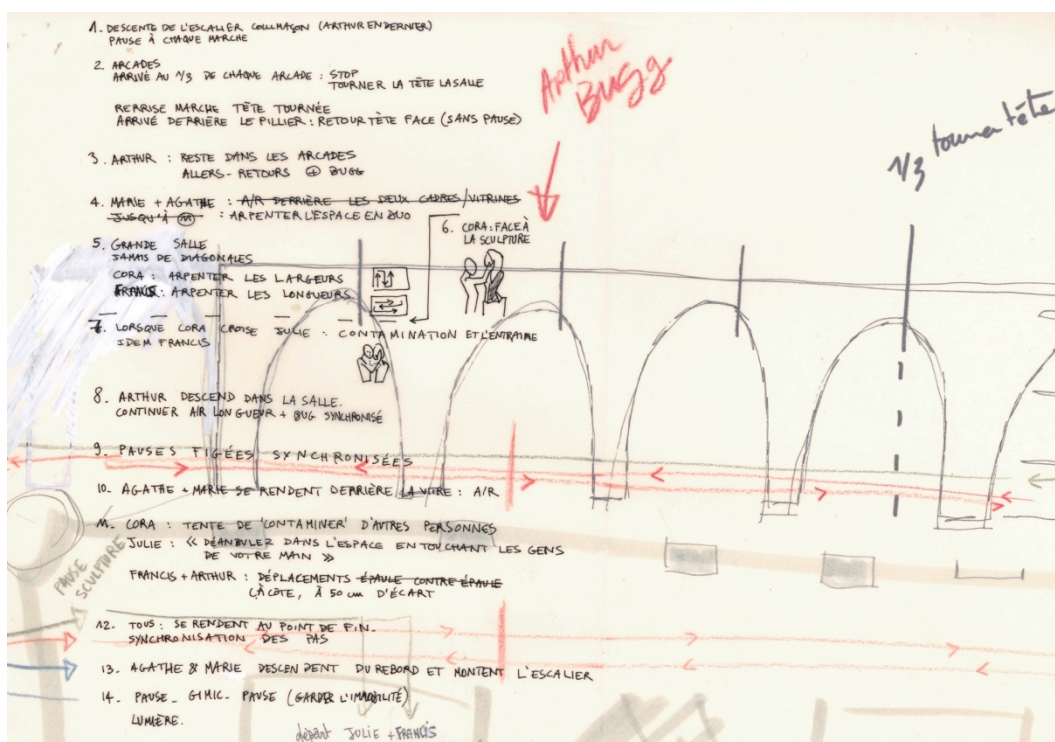 1. DESCENTE DE L'ESCALIER COLIMAÇON (ARTHUR EN DERNIER)
PAUSE À CHAQUE MARCHE
2. ARCADES
ARRIVÉ AU 1/3 DE CHAQUE ARCADE : STOP
TOURNER LA TÊTE LA SALLE
REPRISE MARCHE TÊTE TOURNÉE
ARRIVÉ DERRIÈRE LE PILLIER : RETOUR TÊTE FACE (SANS PAUSE)
3. ARTHUR : RESTE DANS LES ARCADES
ALLERS-RETOURS ⊕ BUGG
4. MARIE + AGATHE : A/R DERRIÈRE LES DEUX CADRES/VITRINES
JUSQU'À M : ARPENTER L'ESPACE EN DUO
5. GRANDE SALLE
JAMAIS DE DIAGONALES
CORA : ARPENTER LES LARGEURS
FRANCIS : ARPENTER LES LONGUEURS
6. CORA : FACE À
LA SCULPTURE
7. LORSQUE CORA CROISE JULIE : CONTAMINATION ET L'ENTRAINE
IDEM FRANCIS
8. ARTHUR DESCEND DANS LA SALLE.
CONTINUER A/R LONGUEUR + BUG SYNCHRONISÉ
9. PAUSES FIGÉES SYNCHRONISÉES
10. AGATHE + MARIE SE RENDENT DERRIÈRE LA VITRE : A/R
11. CORA : TENTE DE 'CONTAMINER' D'AUTRES PERSONNES
JULIE : « DÉAMBULEZ DANS L'ESPACE EN TOUCHANT LES GENS
DE VOTRE MAIN »
FRANCIS + ARTHUR : DÉPLACEMENTS ÉPAULE CONTRE ÉPAULE
CÔTE À CÔTE, À 50 cm D'ÉCART
12. TOUS : SE RENDENT AU POINT DE FIN.
SYNCHRONISATION DES PAS
13. AGATHE & MARIE DESCENDENT DU REBORD ET MONTENT L'ESCALIER
14. PAUSE_ GIMIC_ PAUSE (GARDER L'IMMOBILITÉ)
LUMIÈRE.
Arthur
BUGG.
1/3 tourner tête
PAUSE
SCULPTURE
départ JULIE + FRANCIS